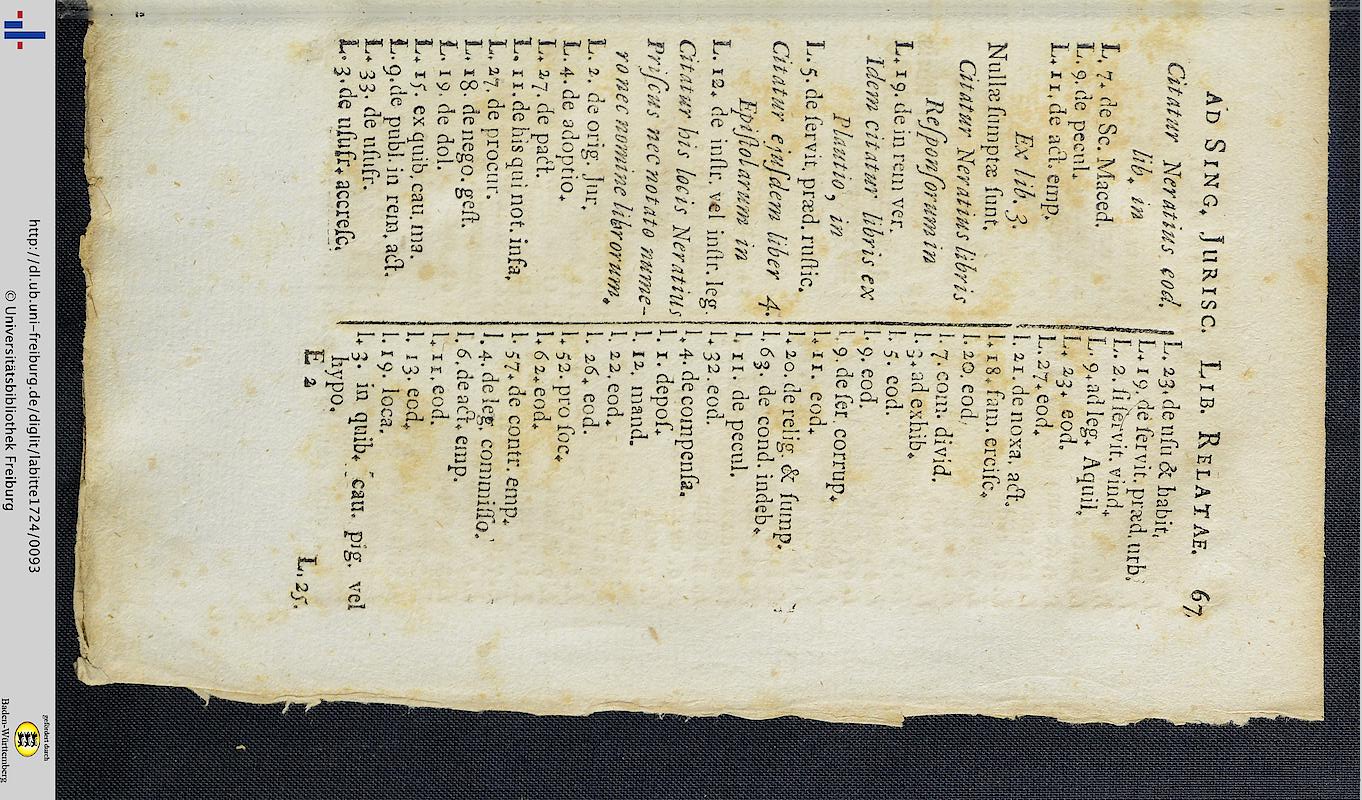 AD SING. JURISC. LIB. RELATAE. 67
Citatur Neratius eod.
lib. in
L. 7. de Sc. Maced.
L. 9. de pecul.
L. 11. de act. emp.
Ex lib. 3.
Nullæ ſumptæ ſunt.
Citatur Neratius libris
Reſponſorum in
L. 19. de in rem ver.
Idem citatur libris ex
Plautio, in
L. 5. de ſervit. præd. ruſtic.
Citatur ejuſdem liber 4.
Epiſtolarum in
L. 12. de inſtr. vel inſtr. leg.
Citatur his locis Neratius
Priſcus nec notato nume-
ro nec nomine librorum.
L. 2. de orig. Jur.
L. 4. de adoptio.
L. 27. de pact.
L. 11. de his qui not. infa.
L. 27. de procur.
L. 18. de nego. geſt.
L. 19. de dol.
L. 15. ex quib. cau. ma.
L. 9. de publ. in rem. act.
L. 33. de uſufr.
L. 3. de uſufr. accreſc.
L. 23. de uſu & habit.
L. 19. de ſervit. præd. urb.
L. 2. ſi ſervit. vind.
L. 9. ad leg. Aquil.
L. 23. eod.
L. 27. eod.
l. 21. de noxa. act.
l. 18. fam. erciſc.
l. 20. eod.
l. 7. com. divid.
l. 3. ad exhib.
l. 5. eod.
l. 9. eod.
l. 9. de ſer. corrup.
l. 11. eod.
l. 20. de relig. & ſump.
l. 63. de cond. indeb.
l. 11. de pecul.
l. 32. eod.
l. 4. de compenſa.
l. 1. depoſ.
l. 12. mand.
l. 22. eod.
l. 26. eod.
l. 52. pro ſoc.
l. 62. eod.
l. 57. de contr. emp.
l. 4. de leg. commiſſo.
l. 6. de act. emp.
l. 11. eod.
l. 13. eod.
l. 19. loca.
l. 3. in quib. cau. pig. vel
hypo.
E 2
L. 25.
http://dl.ub.uni-freiburg.de/diglit/labitte1724/0093
© Universitätsbibliothek Freiburg
gefördert durch
Baden-Württemberg